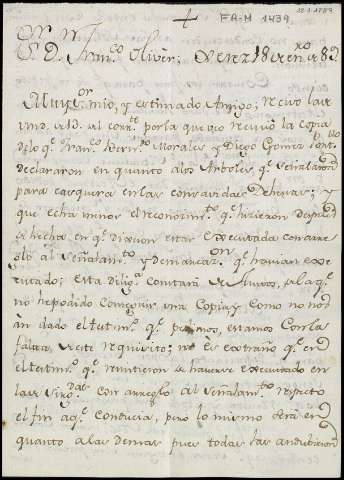 + FA-M 1439
S.r D. Fran.co Oliver; Xerez 18 de en.ro de 83
Muy s.or mio, y estimado Amigo; Recivo la de
Vmd. de 12. del corr.te por la que veo recivió la Copia
de lo q.e Fran.co Morales y Diego Gomez
declararon en quanto a los Arboles, q.e señalaron
para carguera en las conravidas Dehesas; y
que echa menos el reconocim.to q.e hizieron despues
de hecha, en q.e dixeron estar executada con arre-
glo al señalam.to y demarcaz.on q.e havian exe-
cutado; esta dilig.a constará de Autos, de la q.e
no he podido conseguir una Copia y como no nos
an dado el testim.o q.e pedimos, estamos con la
falta, de este requisito; no es extraño q.e en
el testim.o q.e remitieron de haverse executado en
las con arreglo al señalam.to respecto
el fin a q.e conducia, pero lo mismo será en
quanto a las demas pues todas las andubieron